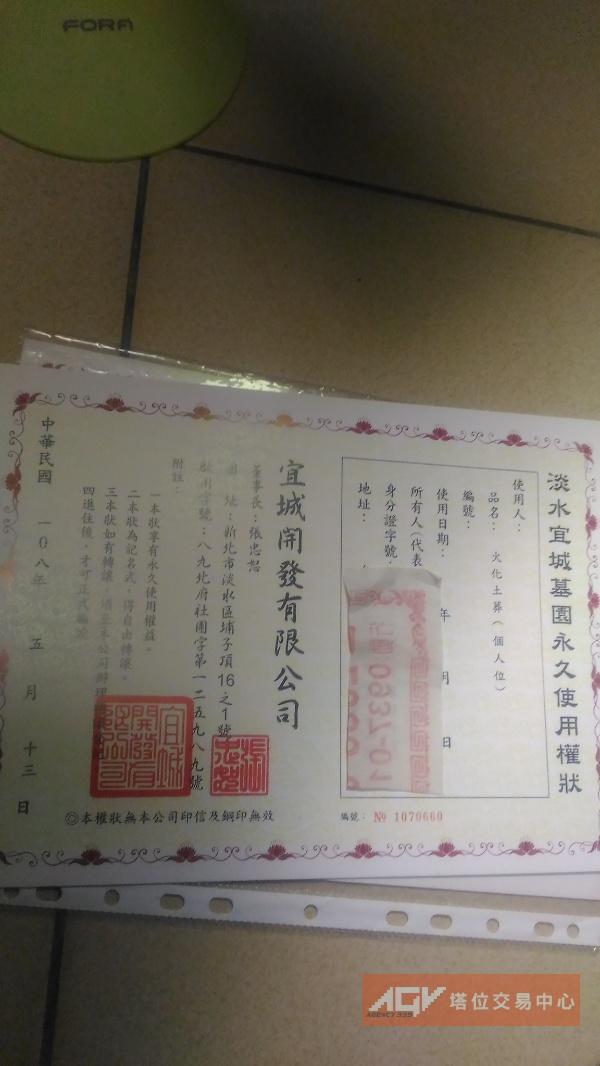 FORA
淡水宜城墓園永久使用權狀
使用人：
品名： 火化土葬（個人位）
編號：
使用日期： 年 月 日
所有人(代表
身分證字號：
地址：
編號： № 1070660
宜城開發有限公司
董事長：張忠恕
址：新北市淡水區埔子頂16之1號
啟用字號：八九北府社團字第一二五九八九號
附註：
一本狀享有永久使用權益。
二本狀為記名式，得自由轉讓。
三本狀如有轉讓，須至本公司辦理
四進住後，才可正式編號
中華民國 一０八年 五 月 十三 日
◎本權狀無本公司印信及鋼印無效
宜城開發有限公司
0937-01
AGV 塔位交易中心
AGENCY 339